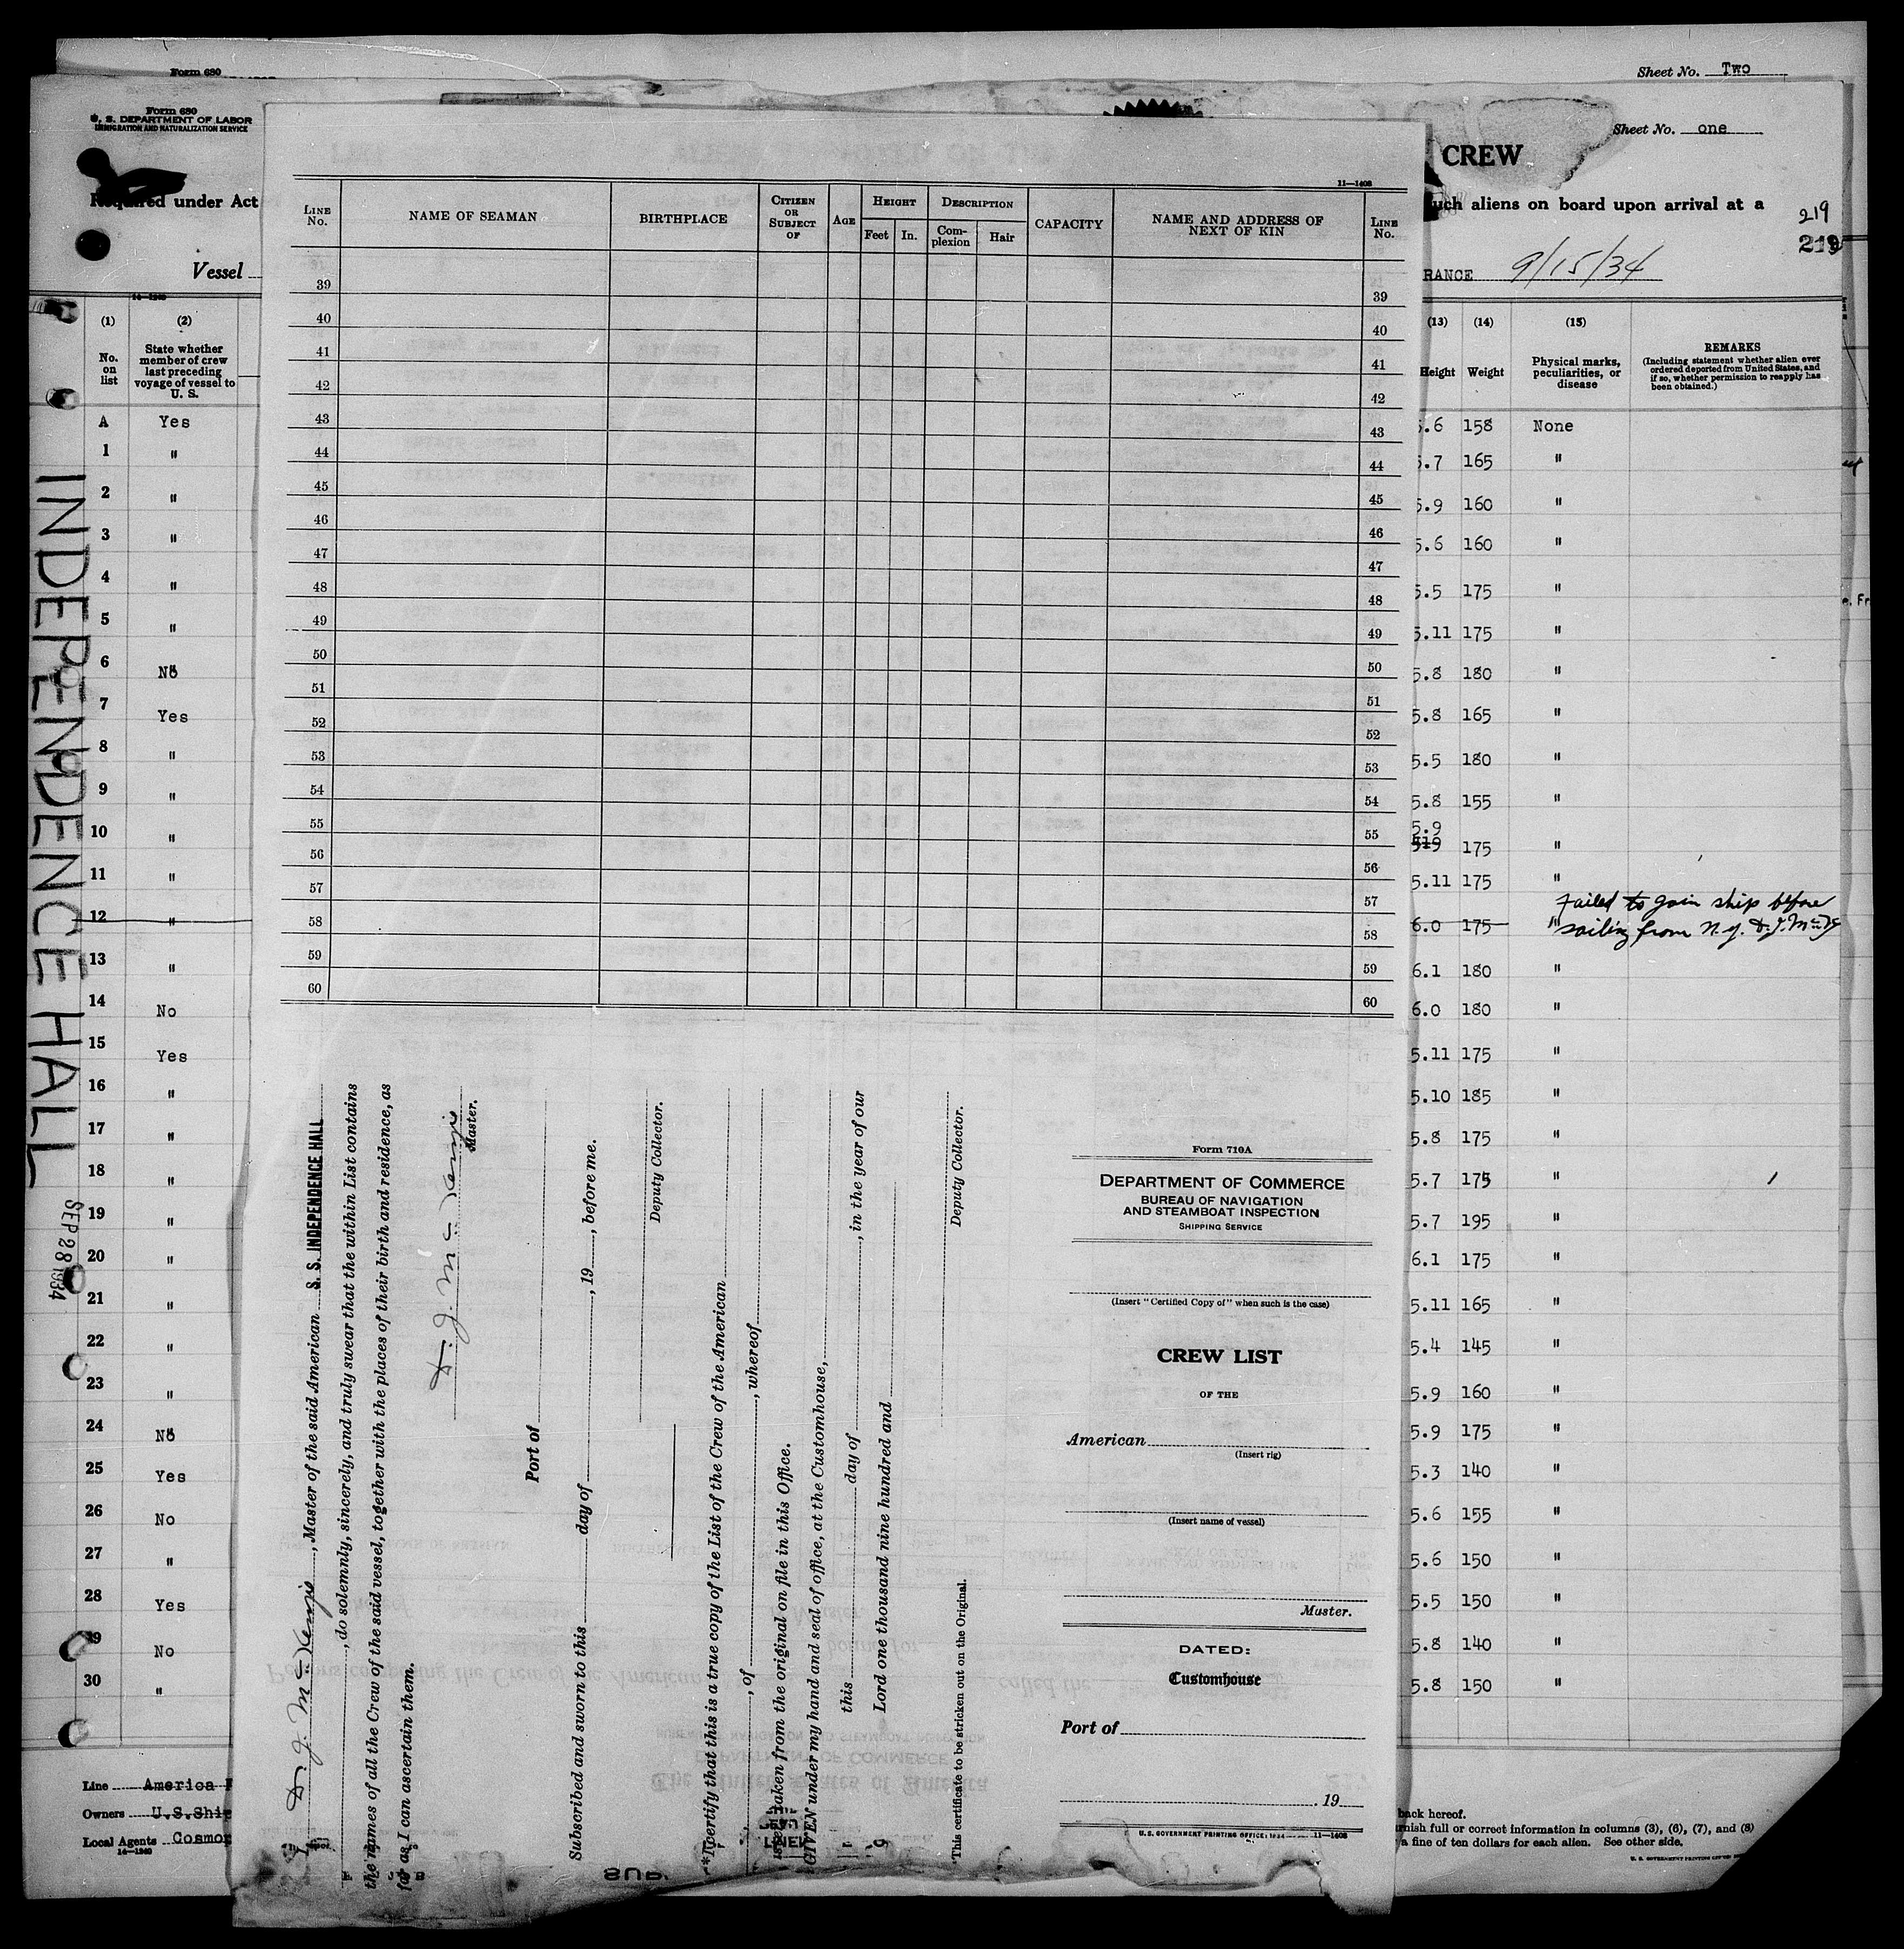 Form 680
Sheet No. Two
Form 680
U. S. DEPARTMENT OF LABOR
IMMIGRATION AND NATURALIZATION SERVICE
Sheet No. one
CREW
Required under Act
such aliens on board upon arrival at a
219
219
Vessel
RANCE 9/15/34
(1) (2)
No. on list
State whether member of crew last preceding voyage of vessel to U. S.
(13) (14) (15)
Height Weight
Physical marks, peculiarities, or disease
REMARKS
(Including statement whether alien ever ordered deported from United States, and if so, whether permission to reapply has been obtained.)
A Yes
1 "
2 "
3 "
4 "
5 "
6 No
7 Yes
8 "
9 "
10 "
11 "
12 "
13 "
14 No
15 Yes
16 "
17 "
18 "
19 "
20 "
21 "
22 "
23 "
24 No
25 Yes
26 No
27 "
28 Yes
29 No
30 "
INDEPENDENCE HALL
SEP 28 1934
Line America
Owners U.S.Ship
Local Agents Cosmop
14—1240
11—1408
LINE No.
NAME OF SEAMAN
BIRTHPLACE
CITIZEN OR SUBJECT OF
AGE
HEIGHT
Feet In.
DESCRIPTION
Complexion Hair
CAPACITY
NAME AND ADDRESS OF NEXT OF KIN
LINE No.
39 39
40 40
41 41
42 42
43 43
44 44
45 45
46 46
47 47
48 48
49 49
50 50
51 51
52 52
53 53
54 54
55 55
56 56
57 57
58 58
59 59
60 60
5.6 158 None
5.7 165 "
5.9 160 "
5.6 160 "
5.5 175 "
5.11 175 "
5.8 180 "
5.8 165 "
5.5 180 "
5.8 155 "
5.9
519 175 "
5.11 175 "
Failed to join ship before
6.0 175 " sailing from N.Y. D.J. McK
6.1 180 "
6.0 180 "
5.11 175 "
5.10 185 "
5.8 175 "
5.7 175 "
5.7 195 "
6.1 175 "
5.11 165 "
5.4 145 "
5.9 160 "
5.9 175 "
5.3 140 "
5.6 155 "
5.6 150 "
5.5 150 "
5.8 140 "
5.8 150 "
I, D. J. McKenzie, Master of the said American S. S. INDEPENDENCE HALL
, do solemnly, sincerely, and truly swear that the within List contains
the names of all the Crew of the said vessel, together with the places of their birth and residence, as
far as I can ascertain them.
D. J. McKenzie
Master.
Port of
Subscribed and sworn to this day of , 19 , before me.
Deputy Collector.
*I certify that this is a true copy of the List of the Crew of the American
, of , whereof
is taken from the original on file in this Office.
GIVEN under my hand and seal of office, at the Customhouse,
this day of , in the year of our
Lord one thousand nine hundred and
Deputy Collector.
*This certificate to be stricken out on the Original.
Form 710A
DEPARTMENT OF COMMERCE
BUREAU OF NAVIGATION
AND STEAMBOAT INSPECTION
SHIPPING SERVICE
(Insert "Certified Copy of" when such is the case)
CREW LIST
OF THE
American
(Insert rig)
(Insert name of vessel)
Master.
DATED:
Customhouse
Port of
, 19
U. S. GOVERNMENT PRINTING OFFICE: 1934 11—1408
back hereof.
rnish full or correct information in columns (3), (6), (7), and (8)
a fine of ten dollars for each alien. See other side.
U. S. GOVERNMENT PRINTING OFFICE